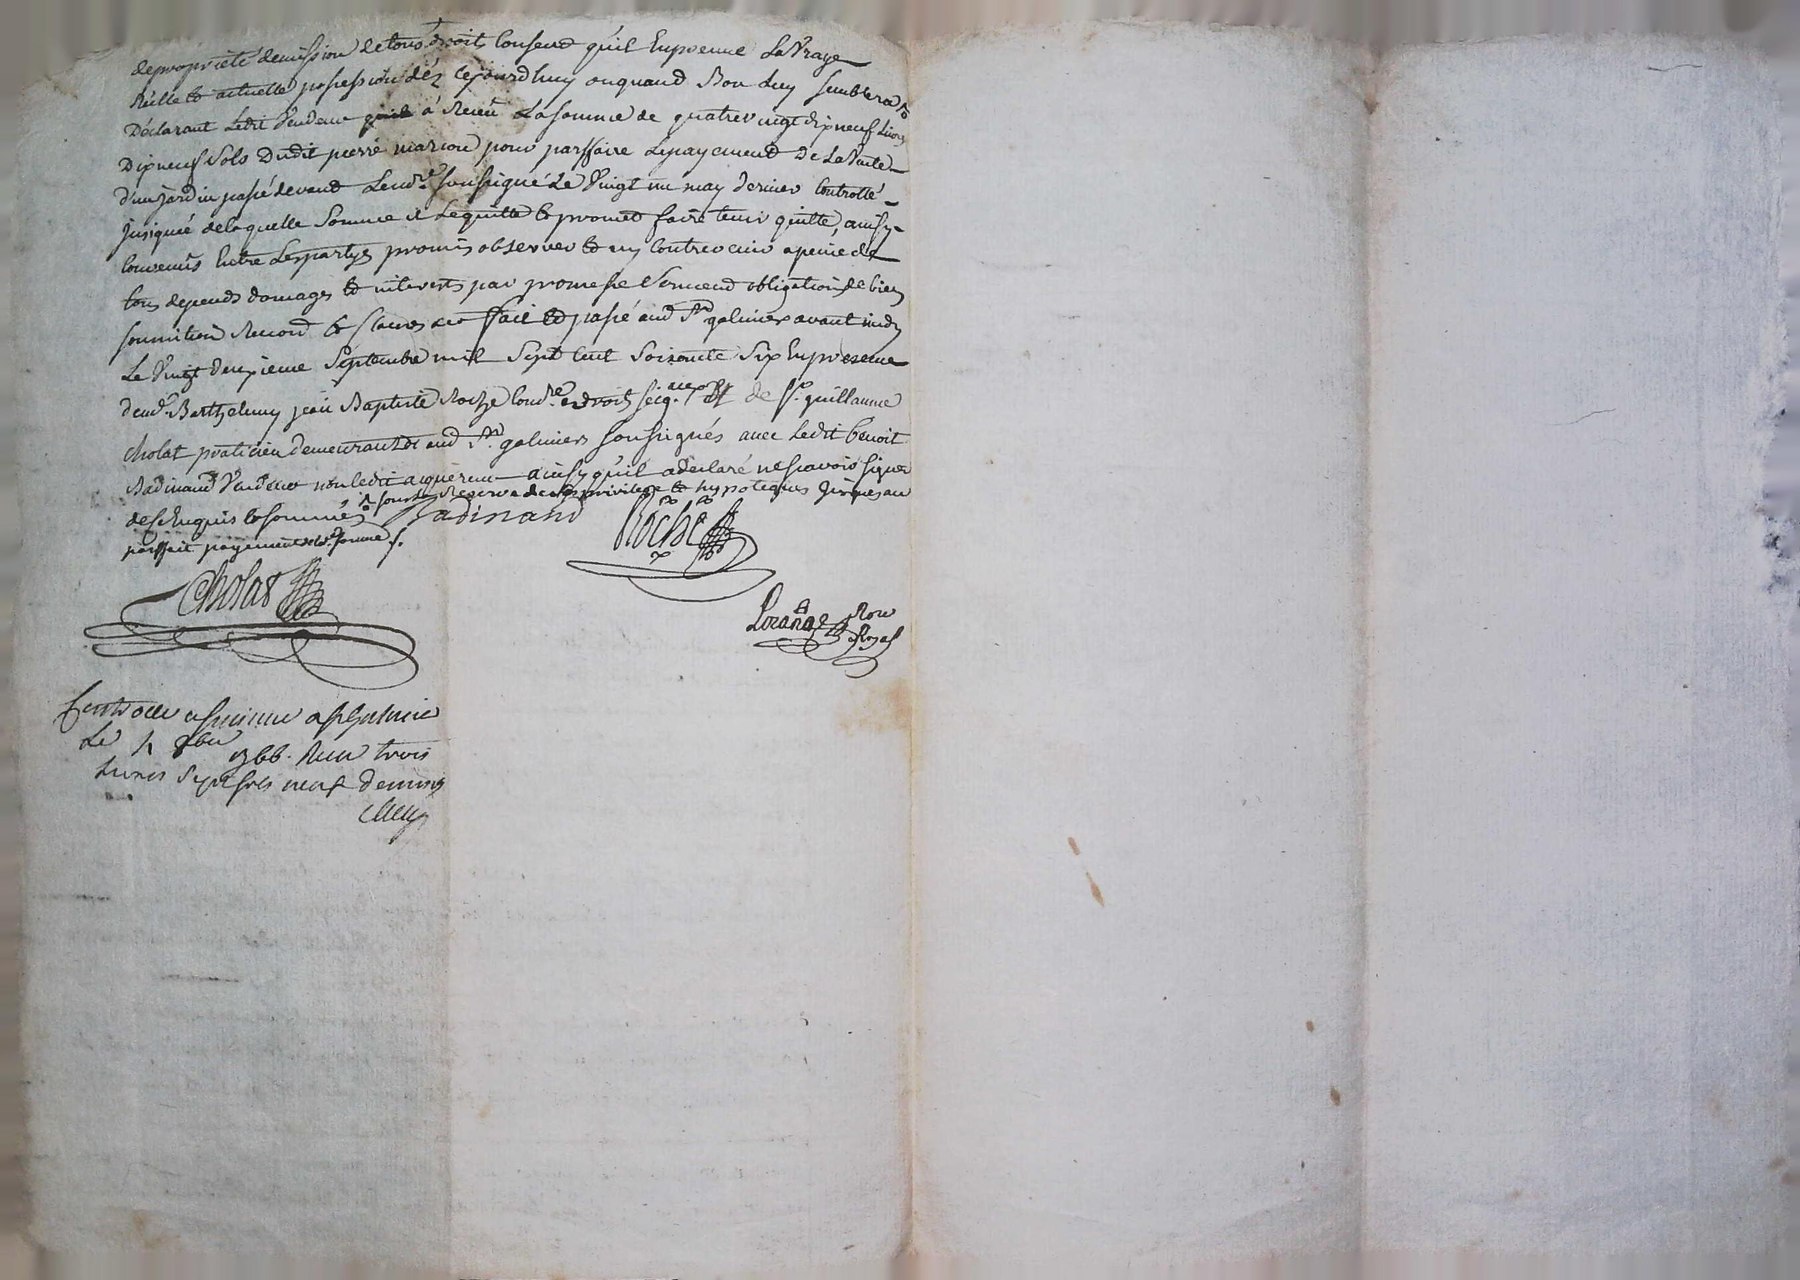 depropriété demission de tous droits consend qu'il Enprenne La Vraye
Réélle et actuelle possession dés cejourdhuy ou quand Bon Luy semblera
Déclarant Ledit Vendeur avoir Recu La somme de quatrevingt dix neuf Livres
Dixneuf Sols Dudit pierre marion pour parffaire Le payement De La Vente
d'un jardin passé devant Le nore soussigné Le Vingt un may dernier Controllé
Insignué de laquelle Somme il Le quitte et promet faire tenir quitte, ainsy
convenus Entre Les partyes promis observer et ny contrevenir a peine de
tous depends domages et interests par promesse Serment obligation de biens
soumition Renond et clauses fait et passé aud St galmier avant midy
Le Vingt deuxieme Septembre mil Sept Cent Soixante Six En presence
de Barthelemy jean Baptiste Roche de Sr guillaume
cholat praticien demeurants aud St galmier soussignés avec Ledit benoit
Badinand Vendeur non ledit acquereur ainsy qu'il a declaré ne scavoir signer
de ce Enquis et sommé sous La Reserve de ses privilege et hypoteques jusques au
parffait payement de la somme
Badinand Roché
Cholat
Lorange Nore Royal
Controllé et insinué a St Galmier
Le 4 8bre 1766. Recu trois
Livres Sept sols neuf deniers